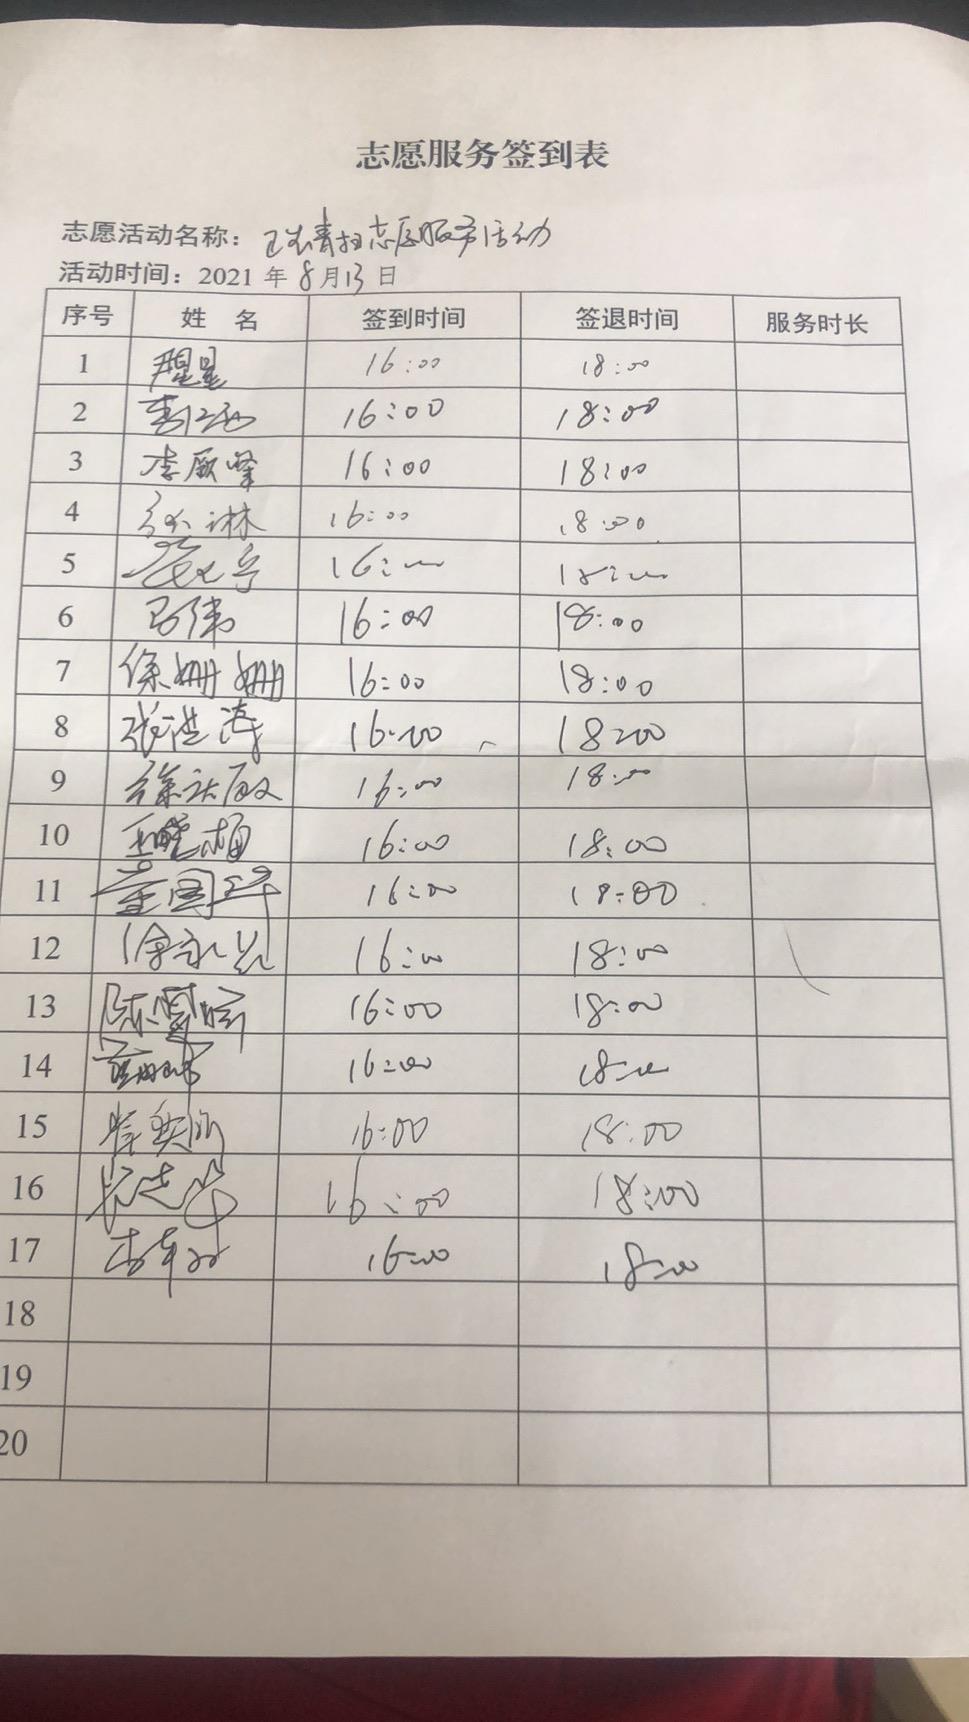 志愿服务签到表
志愿活动名称： 清扫志愿服务活动
活动时间：2021 年 8 月 13 日
序号 姓 名 签到时间 签退时间 服务时长
1 16:00 18:00
2 16:00 18:00
3 李 峰 16:00 18:00
4 16:00 18:00
5 16:00 18:00
6 马伟 16:00 18:00
7 徐姗姗 16:00 18:00
8 张洪涛 16:00 18:00
9 16:00 18:00
10 16:00 18:00
11 董国 16:00 18:00
12 徐永 16:00 18:00
13 陈雪 16:00 18:00
14 16:00 18:00
15 16:00 18:00
16 16:00 18:00
17 16:00 18:00
18
19
20